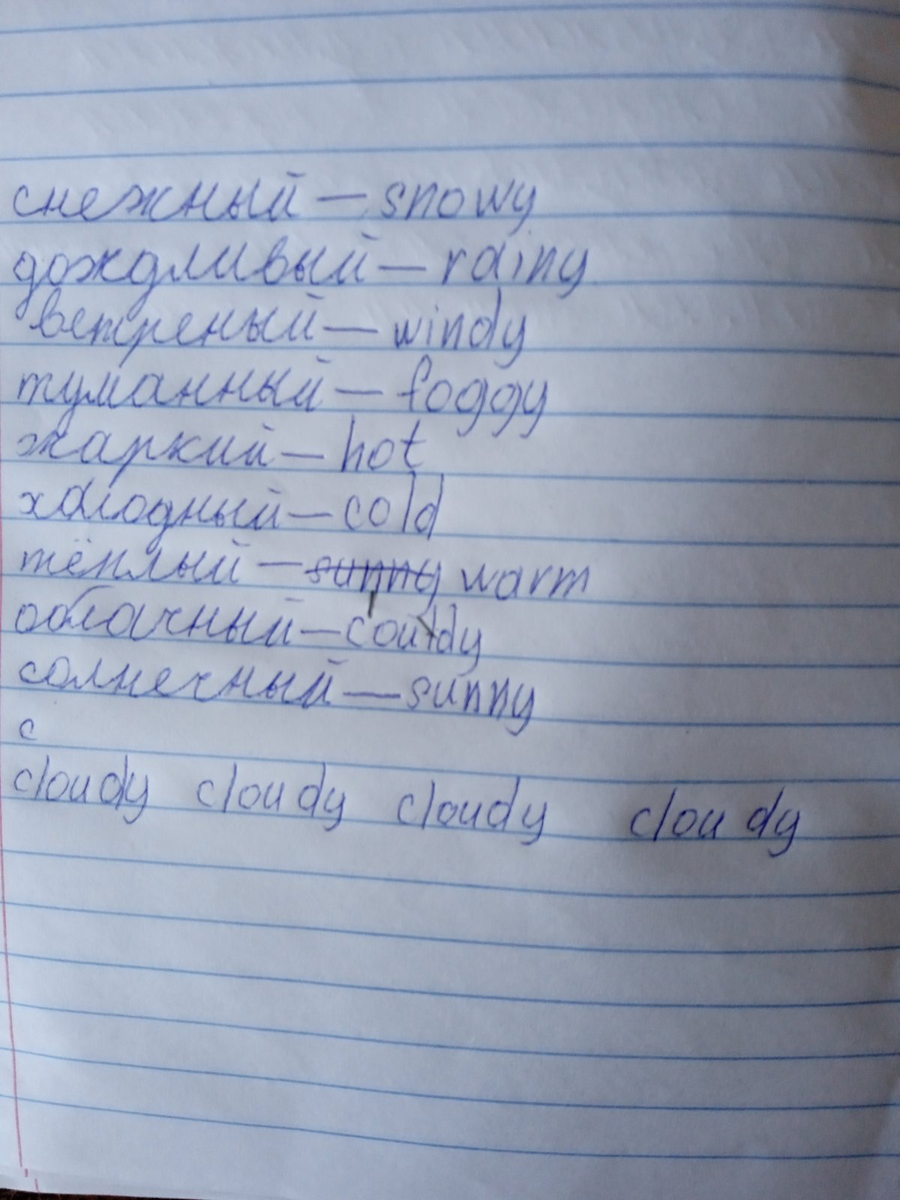 снежный — snowy
дождливый — rainy
ветреный — windy
туманный — foggy
жаркий — hot
халодный — cold
тёплый — sunny warm
облачный — couldy
солнечный — sunny
c
cloudy cloudy cloudy cloudy